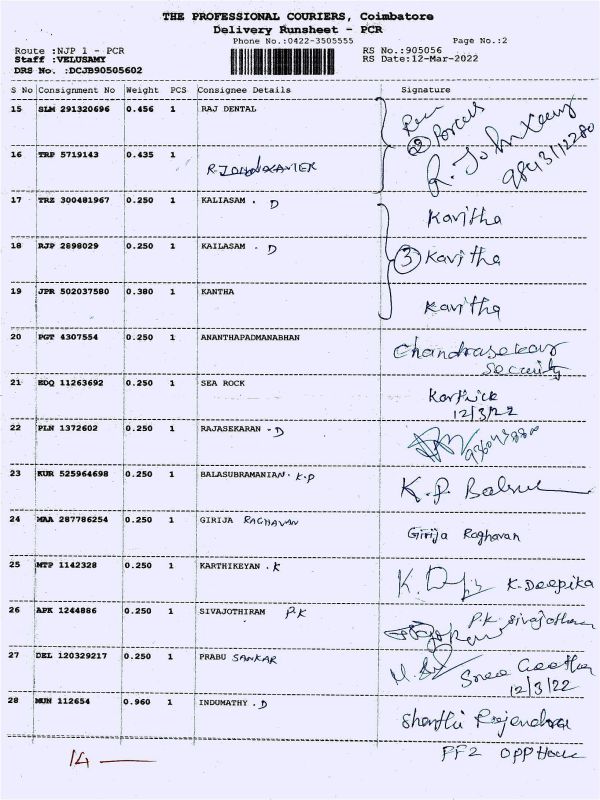 THE PROFESSIONAL COURIERS, Coimbatore
Delivery Runsheet - PCR
Phone No.:0422-3505555
Page No.:2
Route :NJP 1 - PCR
RS No.:905056
Staff :VELUSAMY
RS Date:12-Mar-2022
DRS No. :DCJB90505602
S No Consignment No Weight PCS Consignee Details Signature
15 SLM 291320696 0.456 1 RAJ DENTAL
② Parcels
16 TRP 5719143 0.435 1 R. John Xavier
17 TRZ 300481967 0.250 1 KALIASAM . D Kavitha
18 RJP 2898029 0.250 1 KAILASAM . D ③ Kavitha
19 JPR 502037580 0.380 1 KANTHA Kavitha
20 PGT 4307554 0.250 1 ANANTHAPADMANABHAN Chandrasekar
Security
21 EDQ 11263692 0.250 1 SEA ROCK Karthick
12/3/22
22 PLN 1372602 0.250 1 RAJASEKARAN - D
23 KUR 525964698 0.250 1 BALASUBRAMANIAN . K.P K.P.
24 MAA 287786254 0.250 1 GIRIJA RAGHAVAN Girija Raghavan
25 MTP 1142328 0.250 1 KARTHIKEYAN . K K. Deepika
26 APK 1244886 0.250 1 SIVAJOTHIRAM P.K P.K
27 DEL 120329217 0.250 1 PRABU SANKAR
12/3/22
28 MUN 112654 0.960 1 INDUMATHY . D Shanthi Rajendran
FF2 Opp House
14